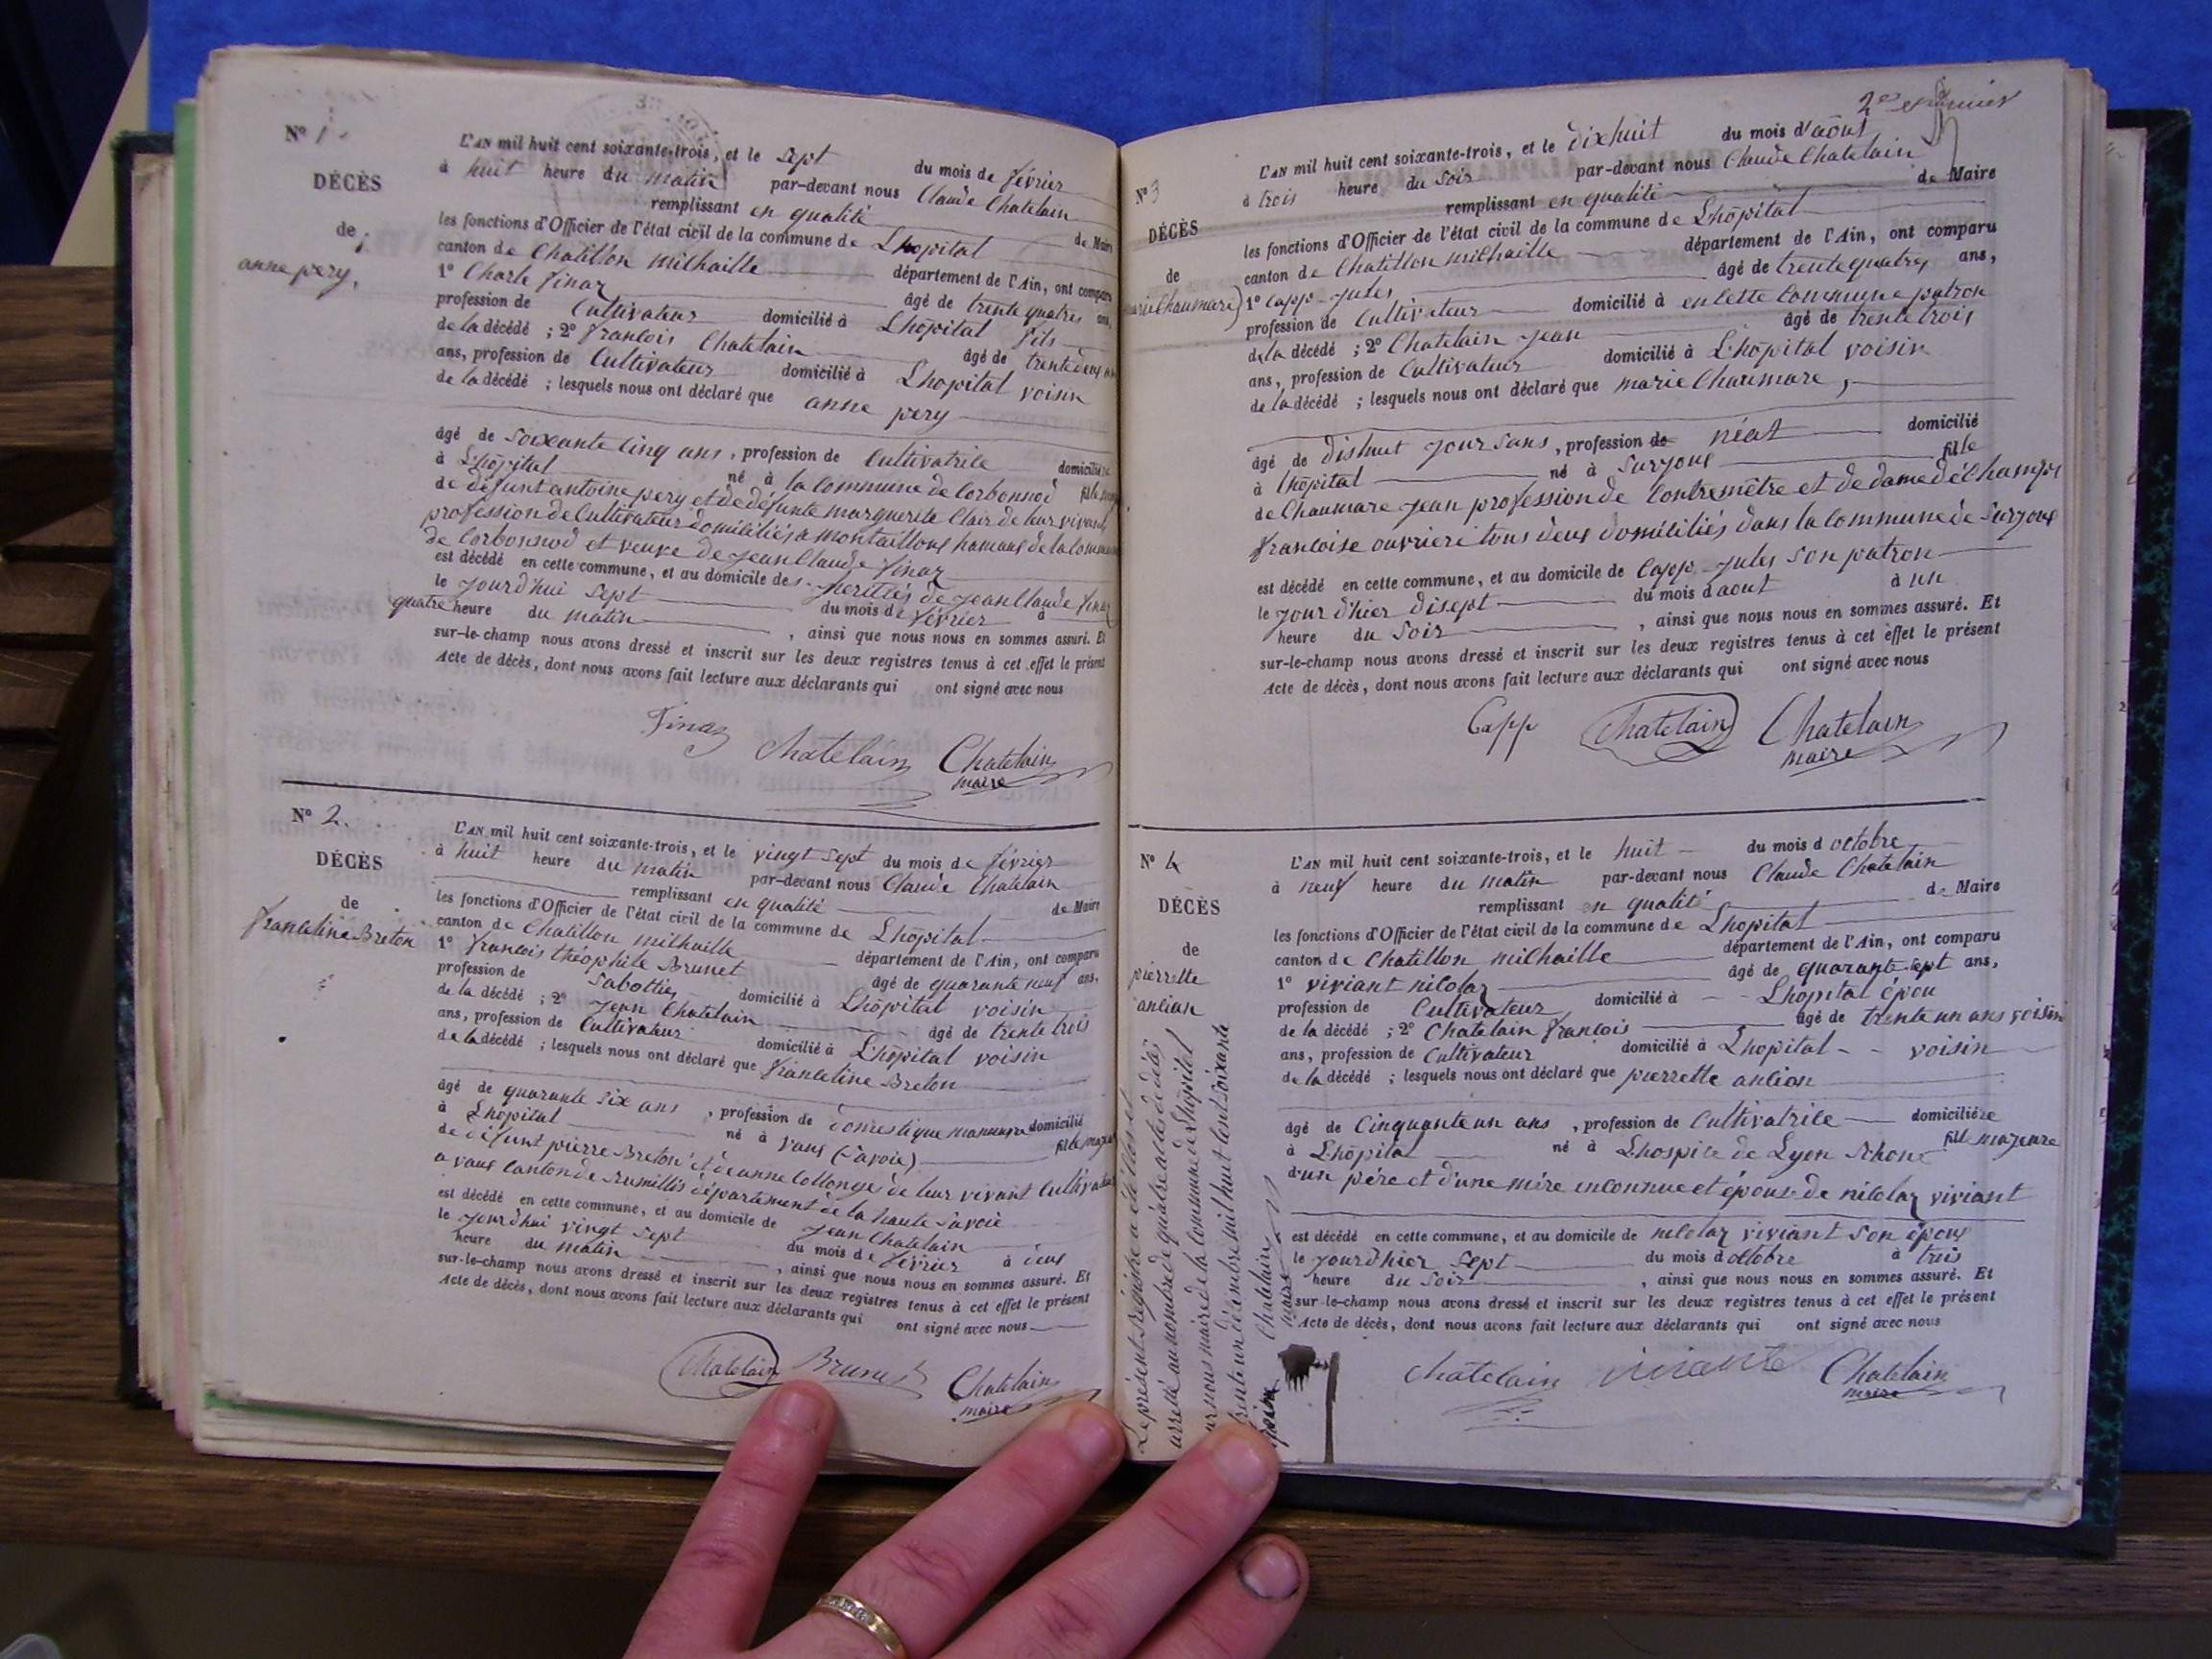 Nº 1.
DÉCÈS
de
anne pery,
L'AN mil huit cent soixante-trois, et le sept du mois de février
à huit heure du matin par-devant nous Claude Chatelain
remplissant en qualité de Maire
les fonctions d'Officier de l'état civil de la commune de Lhopital
canton de Chatillon milhaille département de l'Ain, ont comparu
1º Charle finaz âgé de trente quatres ans,
profession de Cultivateur domicilié à Lhôpital fils
de la décédé ; 2º francois Chatelain âgé de trente deux
ans, profession de Cultivateur domicilié à Lhopital voisin
de la décédé ; lesquels nous ont déclaré que anne pery
âgé de soixante cinq ans, profession de Cultivatrice domicilié
à Lhôpital né à la commune de Corbonnod fille
de défunt antoine pery et de défunte marguerite Clair de leur vivant
profession de Cultivateur domiciliés a montaillous hamaus de la Commune
de Corbonnod et veuve de jean Claude finaz
est décédé en cette commune, et au domicile des heritiés de jean Claude finaz
le jourd'hui sept du mois de février à
quatre heure du matin, ainsi que nous nous en sommes assuré. Et
sur-le-champ nous avons dressé et inscrit sur les deux registres tenus à cet effet le présent
Acte de décès, dont nous avons fait lecture aux déclarants qui ont signé avec nous
finaz Chatelain Chatelain
maire
Nº 2.
DÉCÈS
de
franceline Breton
L'AN mil huit cent soixante-trois, et le vingt sept du mois de février
à huit heure du matin par-devant nous Claude Chatelain
remplissant en qualité de Maire
les fonctions d'Officier de l'état civil de la commune de Lhôpital
canton de Chatillon milhaille département de l'Ain, ont comparu
1º francois théophile Brunet âgé de quarante neuf ans,
profession de Sabottier domicilié à Lhôpital voisin
de la décédé ; 2º Jean Chatelain âgé de trente trois
ans, profession de Cultivateur domicilié à Lhôpital voisin
de la décédé ; lesquels nous ont déclaré que franceline Breton
âgé de quarante six ans, profession de domestique domicilié
à Lhôpital né à vaus (Savoie) fille
de défunt pierre Breton et de anne Collonge de leur vivant Cultivateur
a vaus canton de rumillis département de la haute Savoie
est décédé en cette commune, et au domicile de Jean Chatelain
le jourd'hui vingt sept du mois de février à deus
heure du matin, ainsi que nous nous en sommes assuré. Et
sur-le-champ nous avons dressé et inscrit sur les deux registres tenus à cet effet le présent
Acte de décès, dont nous avons fait lecture aux déclarants qui ont signé avec nous
Chatelain Brunet Chatelain
maire
2e et dernier
Nº 3
DÉCÈS
de
marie Chaumare
L'AN mil huit cent soixante-trois, et le dixhuit du mois d'août
à trois heure du soir par-devant nous Claude Chatelain
remplissant en qualité de Maire
les fonctions d'Officier de l'état civil de la commune de Lhôpital
canton de Chatillon milhaille département de l'Ain, ont comparu
1º Capp jules âgé de trente quatre ans,
profession de Cultivateur domicilié à en cette commune patron
de la décédé ; 2º Chatelain jean âgé de trente trois
ans, profession de Cultivateur domicilié à Lhôpital voisin
de la décédé ; lesquels nous ont déclaré que marie Chaumare,
âgé de dishuit jours ans, profession de néat domicilié
à lhôpital né à Surjous fille
de Chaumare jean profession de Contremêtre et de dame déChamps
francoise ouvriere tous deus domiciliés dans la Commune de Surjous
est décédé en cette commune, et au domicile de Capp jules son patron
le jour d'hier disept du mois d'aout à un
heure du soir, ainsi que nous nous en sommes assuré. Et
sur-le-champ nous avons dressé et inscrit sur les deux registres tenus à cet effet le présent
Acte de décès, dont nous avons fait lecture aux déclarants qui ont signé avec nous
Capp Chatelain Chatelain
maire
Nº 4
DÉCÈS
de
pierrette
anlian
L'AN mil huit cent soixante-trois, et le huit du mois d octobre
à neuf heure du matin par-devant nous Claude Chatelain
remplissant en qualité de Maire
les fonctions d'Officier de l'état civil de la commune de Lhopital
canton de Chatillon milhaille département de l'Ain, ont comparu
1º viviant nicolaz âgé de quarante sept ans,
profession de Cultivateur domicilié à Lhopital épou
de la décédé ; 2º Chatelain francois âgé de trente un ans voisin
ans, profession de Cultivateur domicilié à Lhopital voisin
de la décédé ; lesquels nous ont déclaré que pierrette anlian
âgé de Cinquante un ans, profession de Cultivatrice domiciliée
à Lhôpital né à Lhospice de Lyon Rhone fille majeure
d'un pére et d'une mére inconnue et épouse de nicolaz viviant
est décédé en cette commune, et au domicile de nicolaz viviant son épous
le jourd'hier sept du mois d octobre à trois
heure du soir, ainsi que nous nous en sommes assuré. Et
sur-le-champ nous avons dressé et inscrit sur les deux registres tenus à cet effet le présent
Acte de décès, dont nous avons fait lecture aux déclarants qui ont signé avec nous
Chatelain viviant Chatelain
maire
Le présent Régistre a été clos et
arretté au nombre de quatre actes de décés
par nous maire de la Commune de Lhôpital
trente un décembre mil huit cent soixante
trois Chatelain
maire